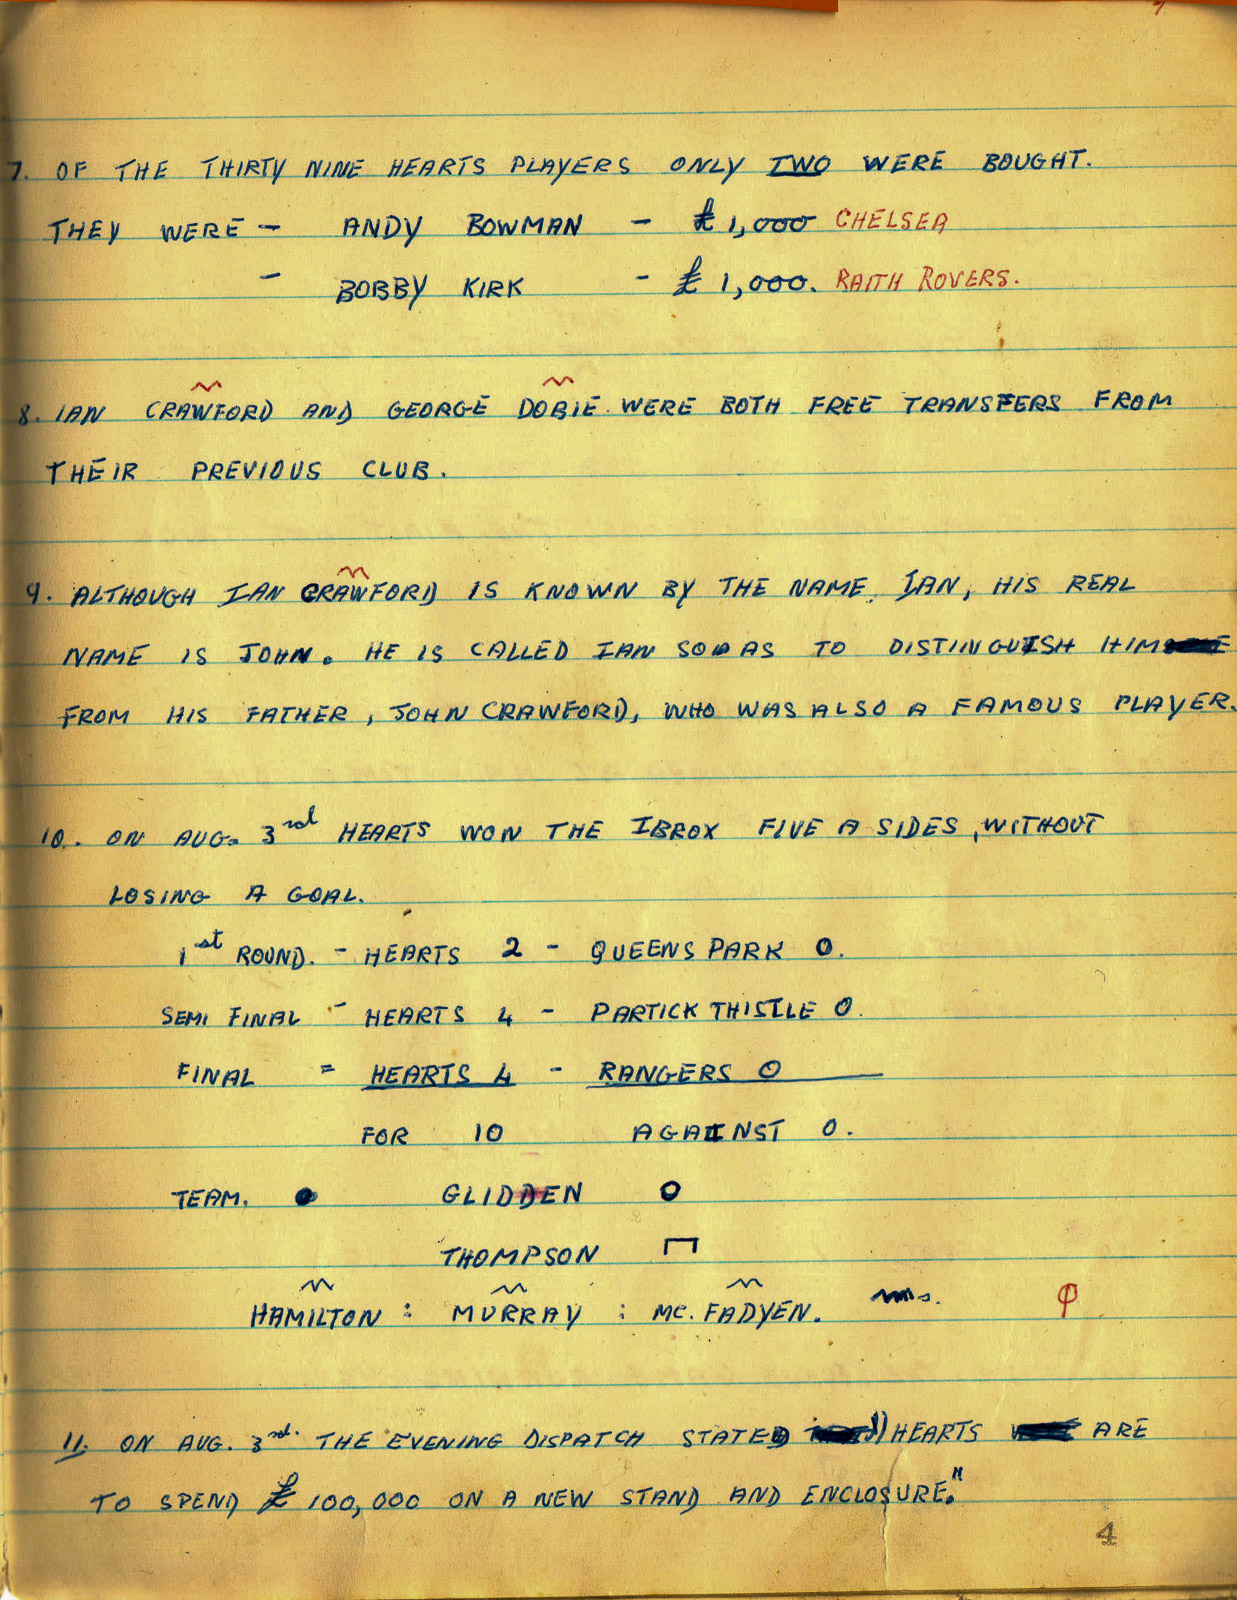 7. OF THE THIRTY NINE HEARTS PLAYERS ONLY TWO WERE BOUGHT.
THEY WERE - ANDY BOWMAN - £1,000 CHELSEA
- BOBBY KIRK - £1,000. RAITH ROVERS.
8. IAN CRAWFORD AND GEORGE DOBIE WERE BOTH FREE TRANSFERS FROM
THEIR PREVIOUS CLUB.
9. ALTHOUGH IAN CRAWFORD IS KNOWN BY THE NAME IAN, HIS REAL
NAME IS JOHN. HE IS CALLED IAN SO AS TO DISTINGUISH HIM
FROM HIS FATHER, JOHN CRAWFORD, WHO WAS ALSO A FAMOUS PLAYER.
10. ON AUG. 3rd HEARTS WON THE IBROX FIVE A SIDES, WITHOUT
LOSING A GOAL.
1st ROUND. - HEARTS 2 - QUEENS PARK 0.
SEMI FINAL - HEARTS 4 - PARTICK THISTLE 0.
FINAL = HEARTS 4 - RANGERS 0
FOR 10 AGAINST 0.
TEAM. GLIDDEN O
THOMPSON
HAMILTON : MURRAY : Mc. FADYEN.
11. ON AUG. 3rd. THE EVENING DISPATCH STATED "HEARTS ARE
TO SPEND £100,000 ON A NEW STAND AND ENCLOSURE."
4